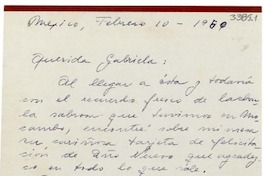 33851
Mexico, Febrero 10 - 1950
Querida Gabriela:
Al llegar a ésta y todavía
con el recuerdo fresco de
que tuvimos en Mo-
cambo, encontré sobre mi mesa
su cariñosa tarjeta de felicita-
ción de Año Nuevo que agradez-
co en todo lo que vale.